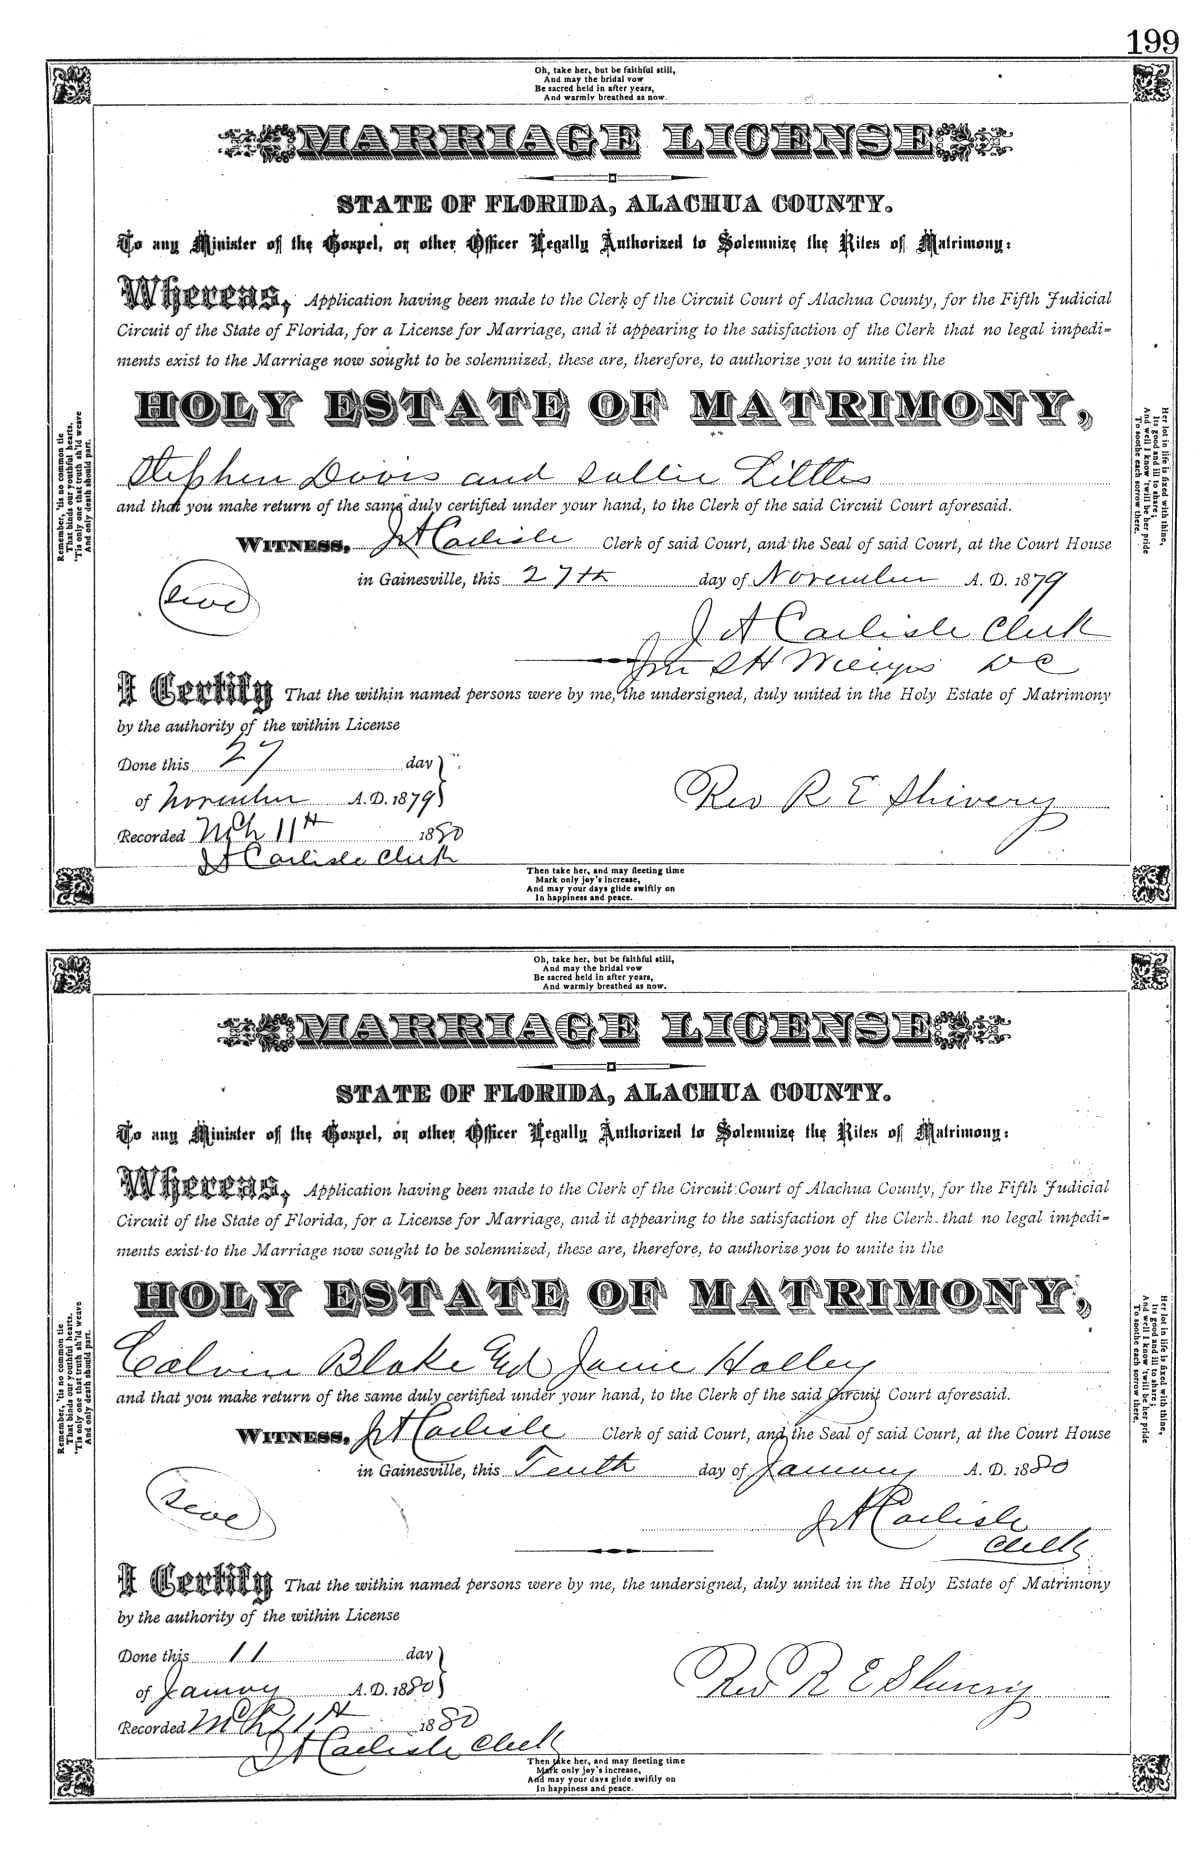 199
Oh, take her, but be faithful still,
And may the bridal vow
Be sacred held in after years,
And warmly breathed as now.
MARRIAGE LICENSE
STATE OF FLORIDA, ALACHUA COUNTY.
To any Minister of the Gospel, or other Officer Legally Authorized to Solemnize the Rites of Matrimony:
Whereas, Application having been made to the Clerk of the Circuit Court of Alachua County, for the Fifth Judicial
Circuit of the State of Florida, for a License for Marriage, and it appearing to the satisfaction of the Clerk that no legal impedi-
ments exist to the Marriage now sought to be solemnized, these are, therefore, to authorize you to unite in the
HOLY ESTATE OF MATRIMONY,
Stephen Davis and Sallie Littles
and that you make return of the same duly certified under your hand, to the Clerk of the said Circuit Court aforesaid.
WITNESS, J A Carlisle Clerk of said Court, and the Seal of said Court, at the Court House
in Gainesville, this 27th day of November A. D. 1879
J A Carlisle Clerk
S H DC
I Certify That the within named persons were by me, the undersigned, duly united in the Holy Estate of Matrimony
by the authority of the within License
Done this 27 day
of November A. D. 1879
Rev R E Shivery
Recorded Mch 11th 1880
J A Carlisle Clerk
Remember, 'tis no common tie
That binds our youthful hearts,
'Tis only one that truth sh'ld weave
And only death should part.
Her lot in life is fixed with thine,
Its good and ill to share;
And well I know 'twill be her pride
To soothe each sorrow there.
Then take her, and may fleeting time
Mark only joy's increase,
And may your days glide swiftly on
In happiness and peace.
Oh, take her, but be faithful still,
And may the bridal vow
Be sacred held in after years,
And warmly breathed as now.
MARRIAGE LICENSE
STATE OF FLORIDA, ALACHUA COUNTY.
To any Minister of the Gospel, or other Officer Legally Authorized to Solemnize the Rites of Matrimony:
Whereas, Application having been made to the Clerk of the Circuit Court of Alachua County, for the Fifth Judicial
Circuit of the State of Florida, for a License for Marriage, and it appearing to the satisfaction of the Clerk that no legal impedi-
ments exist to the Marriage now sought to be solemnized, these are, therefore, to authorize you to unite in the
HOLY ESTATE OF MATRIMONY,
Calvin Blake and Janie Halley
and that you make return of the same duly certified under your hand, to the Clerk of the said Circuit Court aforesaid.
WITNESS, J A Carlisle Clerk of said Court, and the Seal of said Court, at the Court House
in Gainesville, this Tenth day of January A. D. 1880
J A Carlisle
Clerk
I Certify That the within named persons were by me, the undersigned, duly united in the Holy Estate of Matrimony
by the authority of the within License
Done this 11 day
of January A. D. 1880
Rev R E Shivery
Recorded Mch 11th 1880
J A Carlisle Clerk
Remember, 'tis no common tie
That binds our youthful hearts,
'Tis only one that truth sh'ld weave
And only death should part.
Her lot in life is fixed with thine,
Its good and ill to share;
And well I know 'twill be her pride
To soothe each sorrow there.
Then take her, and may fleeting time
Mark only joy's increase,
And may your days glide swiftly on
In happiness and peace.